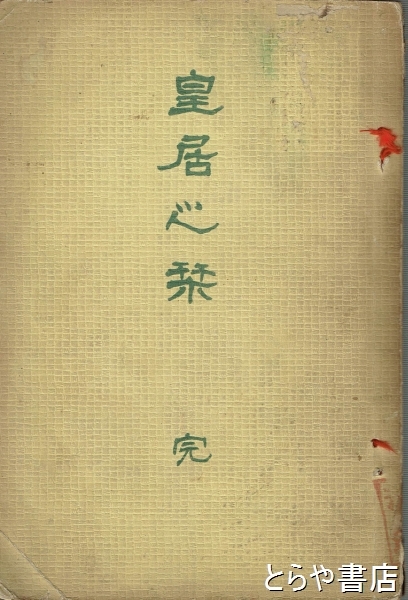 皇居乃栞
完
とらや書店